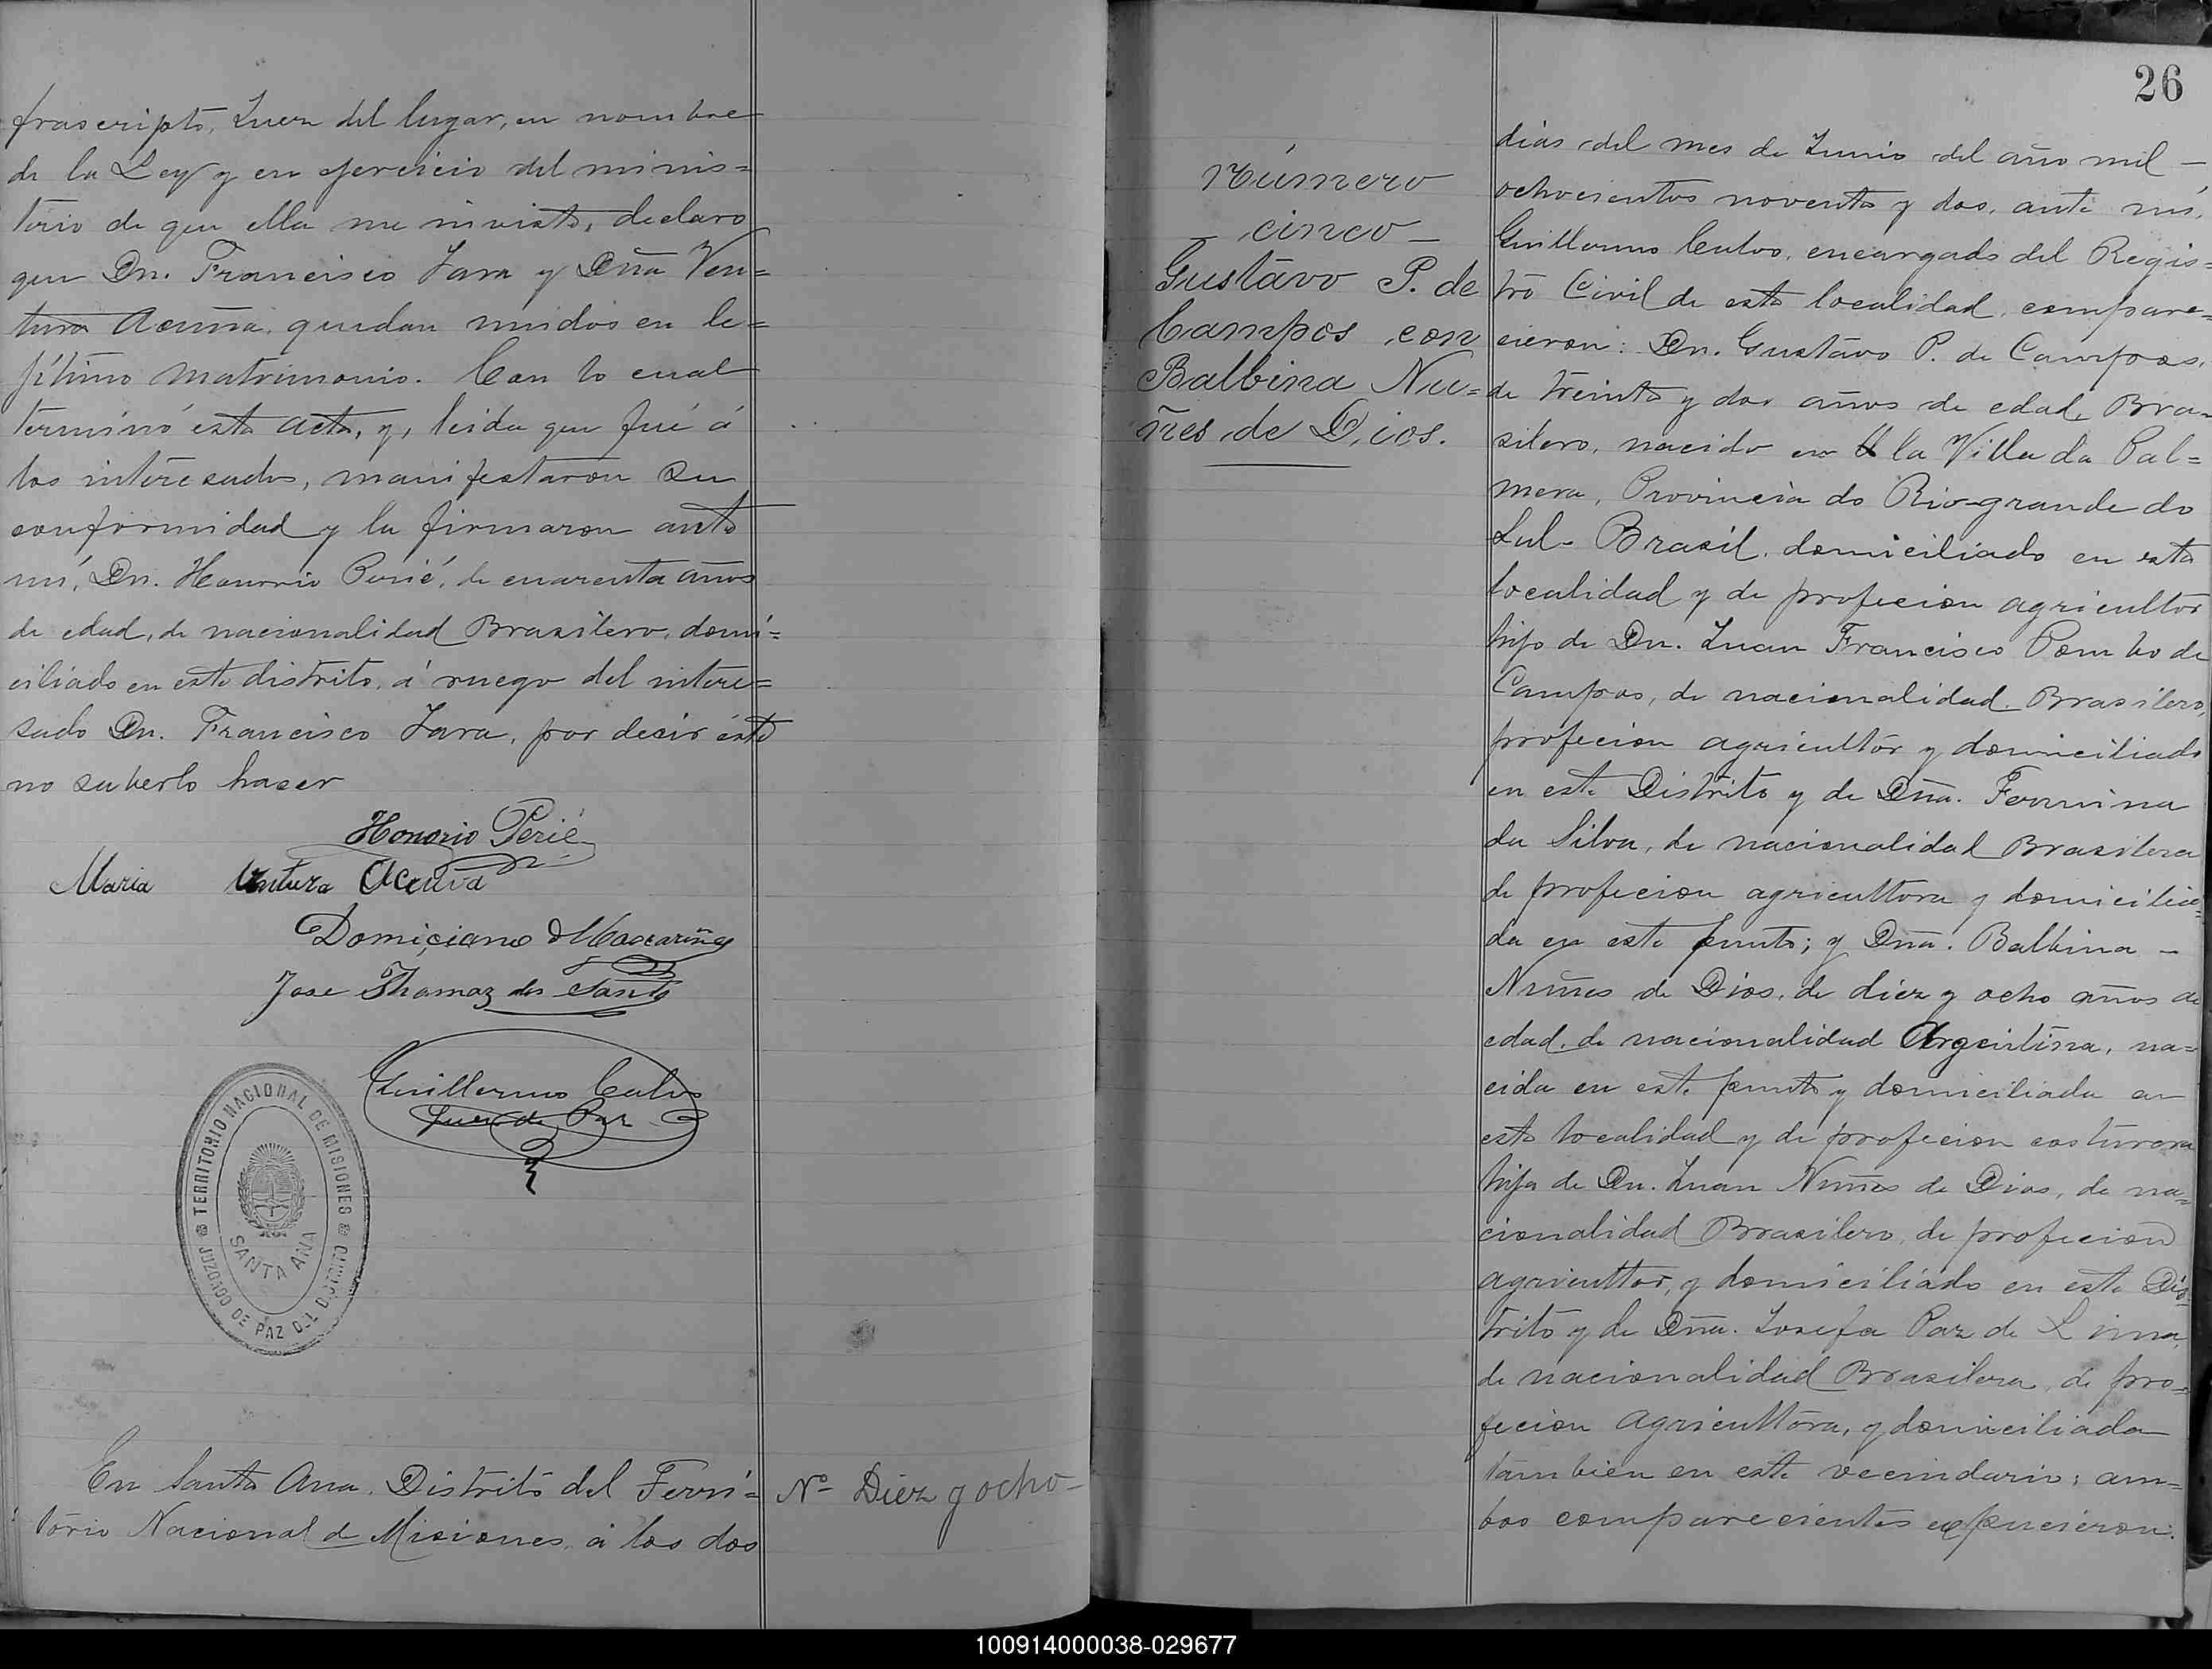 frascripto, Juez del lugar, en nombre
de la Ley y en ejercicio del minis=
terio de que ella me inviste, declaro
que Dn. Francisco Jara y Dña Ven=
tura Acuña, quedan unidos en le=
jítimo matrimonio. Con lo cual
terminó esta acta, y, leida que fué á
los interesados, manifestaron su
conformidad y la firmaron ante
mí, Dn. Honorio Perié, de cuarenta años
de edad, de nacionalidad Brasilero, domi=
ciliado en este distrito, á ruego del intere=
sado Dn. Francisco Jara, por decir éste
no saberlo hacer
Honorio Perié
Maria Ventura Acuña
Domiciano Mascariñas
Jose Thomaz dos Santos
Guillermo Calvo
Juez de Paz
TERRITORIO NACIONAL DE MISIONES
JUZGADO DE PAZ DEL DISTRITO
SANTA ANA
En Santa Ana, Distrito del Terri=
torio Nacional de Misiones, á los dos
No Diez y ocho-
26
Número
- cinco -
Gustavo P. de
Campos con
Balbina Nu=
ñes de Dios.
dias del mes de Junio del año mil -
ochocientos noventa y dos, ante mí,
Guillermo Calvo, encargado del Regis=
tro Civil de esta localidad, compare=
cieron: Dn. Gustavo P. de Campos,
de treinta y dos años de edad, Bra=
silero, nacido en la Villa da Pal=
mera, Provincia do Rio-grande do
Sul- Brasil, domiciliado en esta
localidad y de profecion agricultor
hijo de Dn. Juan Francisco Pombo de
Campos, de nacionalidad Brasilero,
profecion agricultor y domiciliado
en este Distrito y de Dña. Fermina
da Silva, de nacionalidad Brasilera
de profecion agricultora y domicilia=
da en este punto; y Dña. Balbina -
Nuñes de Dios, de diez y ocho años de
edad, de nacionalidad Argentina, na=
cida en este punto y domiciliada en
esta localidad y de profecion costurera
hija de Dn. Juan Nuñes de Dios, de na=
cionalidad Brasilero, de profecion
agricultor, y domiciliado en este Dis=
trito y de Dña. Josefa Paz de Lima,
de nacionalidad Brasilera, de pro=
fecion agricultora, y domiciliada
tambien en este vecindario; am=
bos comparecientes expucieron:
100914000038-029677